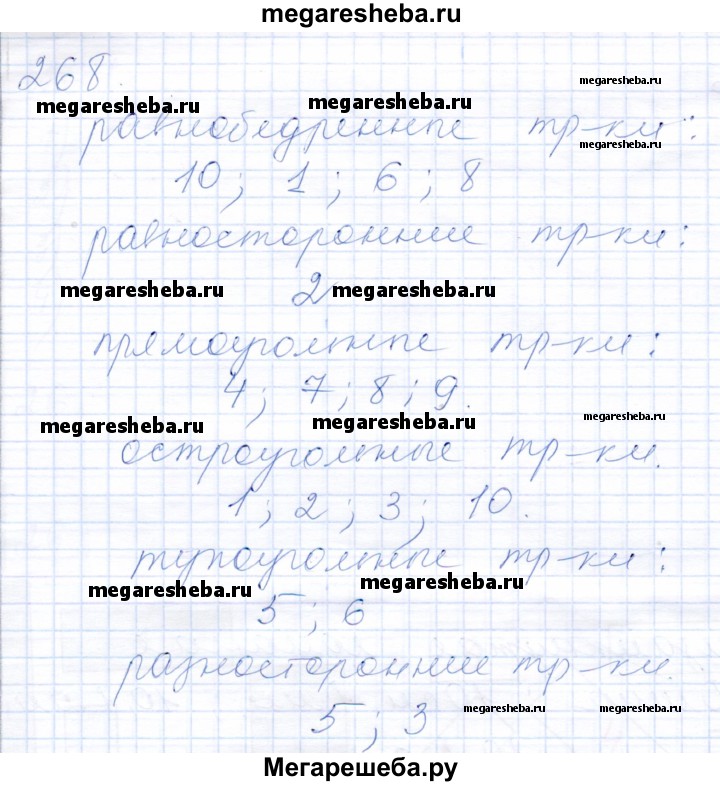 megaresheba.ru
268.
megaresheba.ru
megaresheba.ru
megaresheba.ru
равнобедренные тр-ки:
megaresheba.ru
10; 1; 6; 8
равносторонние тр-ки:
megaresheba.ru
2
megaresheba.ru
прямоугольные тр-ки:
4; 7; 8; 9.
megaresheba.ru
megaresheba.ru
megaresheba.ru
остроугольные тр-ки.
1; 2; 3; 10.
тупоугольные тр-ки:
megaresheba.ru
megaresheba.ru
5; 6
разносторонние тр-ки.
5; 3
megaresheba.ru
megaresheba.ru
Мегарешеба.ру